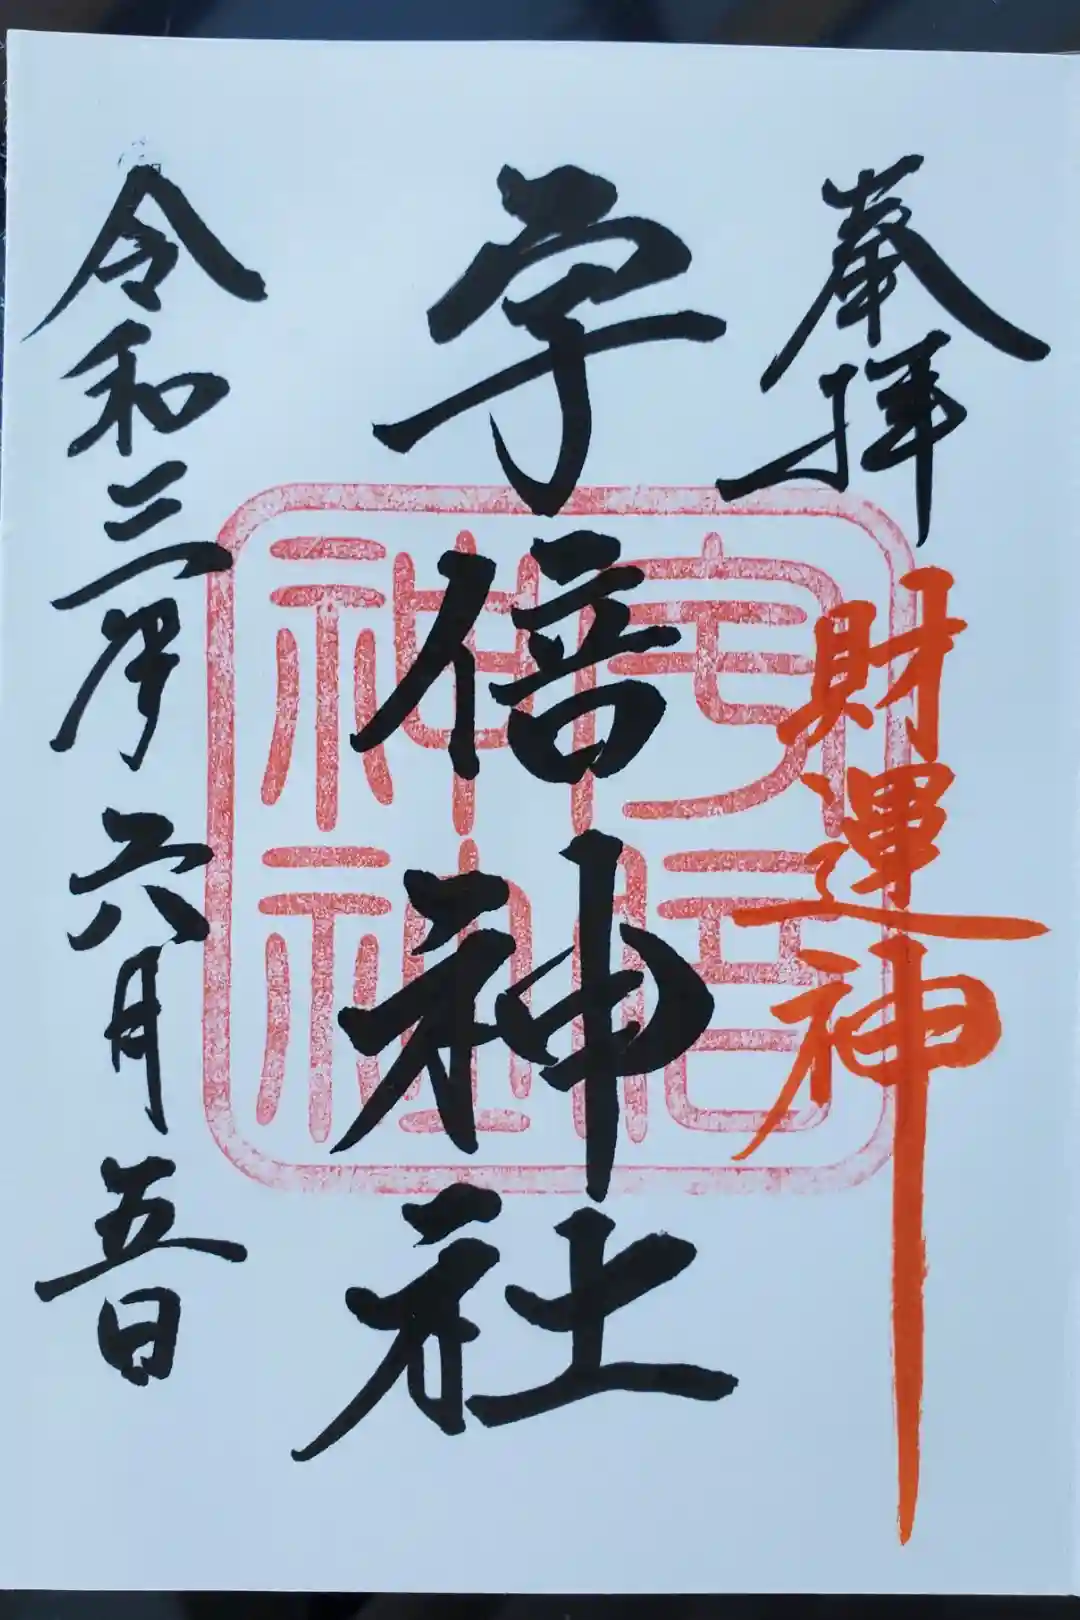 奉拝
財運神
宇倍神社
令和三年六月五日
宇倍
神社